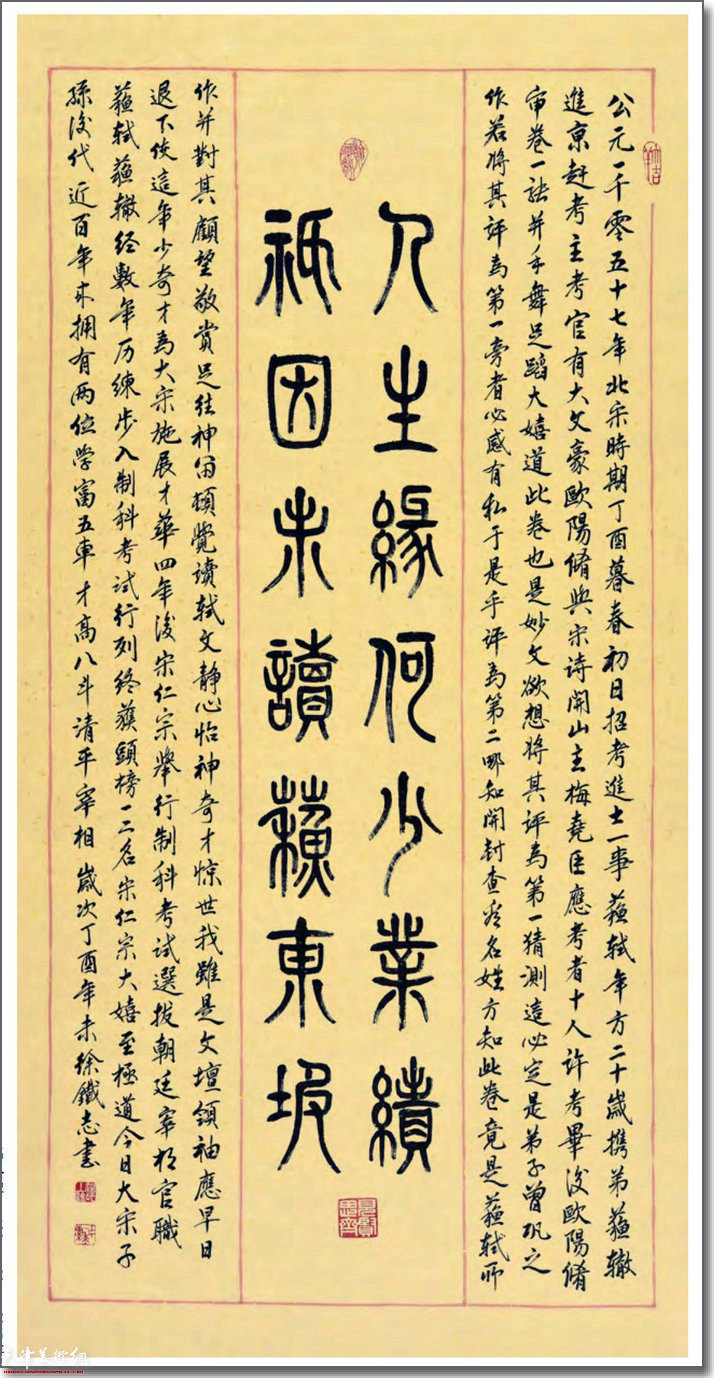 公元一千零五十七年北宋時期丁酉暮春初日招考進士一事蘇軾年方二十歲携弟蘇轍
進京赶考主考官有大文豪歐陽脩與宋诗開山主梅堯臣應考者十人許考畢後歐陽脩
审卷一讀并手舞足蹈大嬉道此卷也是妙文欲想将其评為第一猜测這必定是弟子曾巩之
作若将其评為第一旁者必感有私于是乎评為第二哪知開封查看名姓方知此卷竟是蘇轼所
人生緣何少業績
祇因未讀蘇東坡
作并對其顧望敬賞足往神留頓覺讀轼文静心怡神奇才惊世我雖是文壇領袖應早日
退下使這年少奇才為大宋施展才華四年後宋仁宗舉行制科考试選拔朝廷宰相官職
蘇轼蘇辙经數年历練步入制科考试行列终獲頭榜一二名宋仁宗大嬉至極道今日大宋子
孫後代近百年来拥有两位学富五車才高八斗清平宰相歲次丁酉年末徐鐵志書
見賢思齊
天津美術網